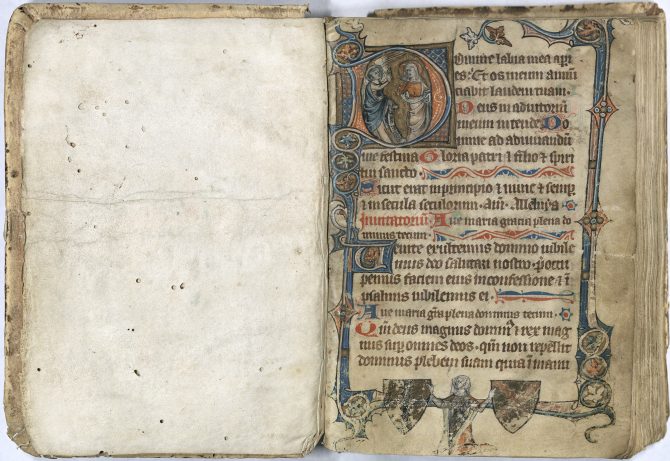 Domine labia mea apri
es: Et os meum annū
ciabit laudem tuam.
Deus in adiutoriū
meum intende Do
mine ad adiuuandū
me festina Gloria patri & filio & spiri
tui sancto.
Sicut erat in principio & nunc & semp
& in secula seculorum. am. Alleluya
Inuitatoriū. Aue maria gracia plena do
minus tecum.
Venite exultemus domino iubile
mus deo salutari nostro. p̄occu
pemus faciem eius in confessione & ī
psalmis iubilemus ei.
Aue maria grā plena dominus tecum.
Qm̄ deus magnus domin⁹ & rex mag
nus sup̄ omnes deos. qm̄ non repellet
dominus plebem suam quia ī manu